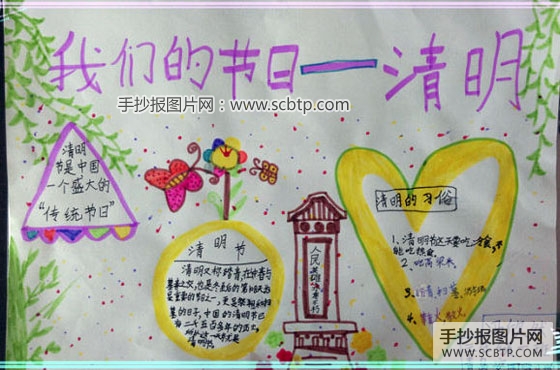 我们的节日——清明
手抄报图片网：www.scbtp.com
清明
节是中国
一个盛大的
“传统节日”
清明节
清明又称踏青,在仲春与
暮春之交,也是冬至后的第108天,
最重要的节日之一,更是祭祖和扫
墓的日子,中国的清明节已
有二千五百多年的历史,
人民英雄永垂不朽
清明的习俗
1、清明节这天要吃冷食,不
能吃热食
2、
3、踏青、扫墓、
4、
手抄报图片网
WWW.SCBTP.COM